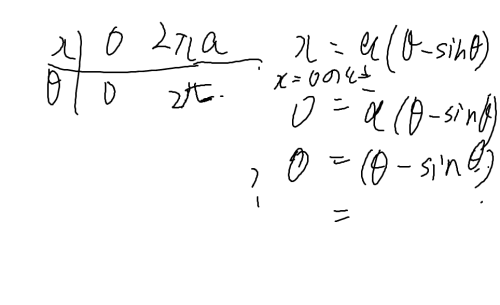 x | 0 2πa
θ | 0 2π.
x = a(θ-sinθ)
x=0のとき
0 = a(θ-sinθ)
0 = (θ-sinθ)
=